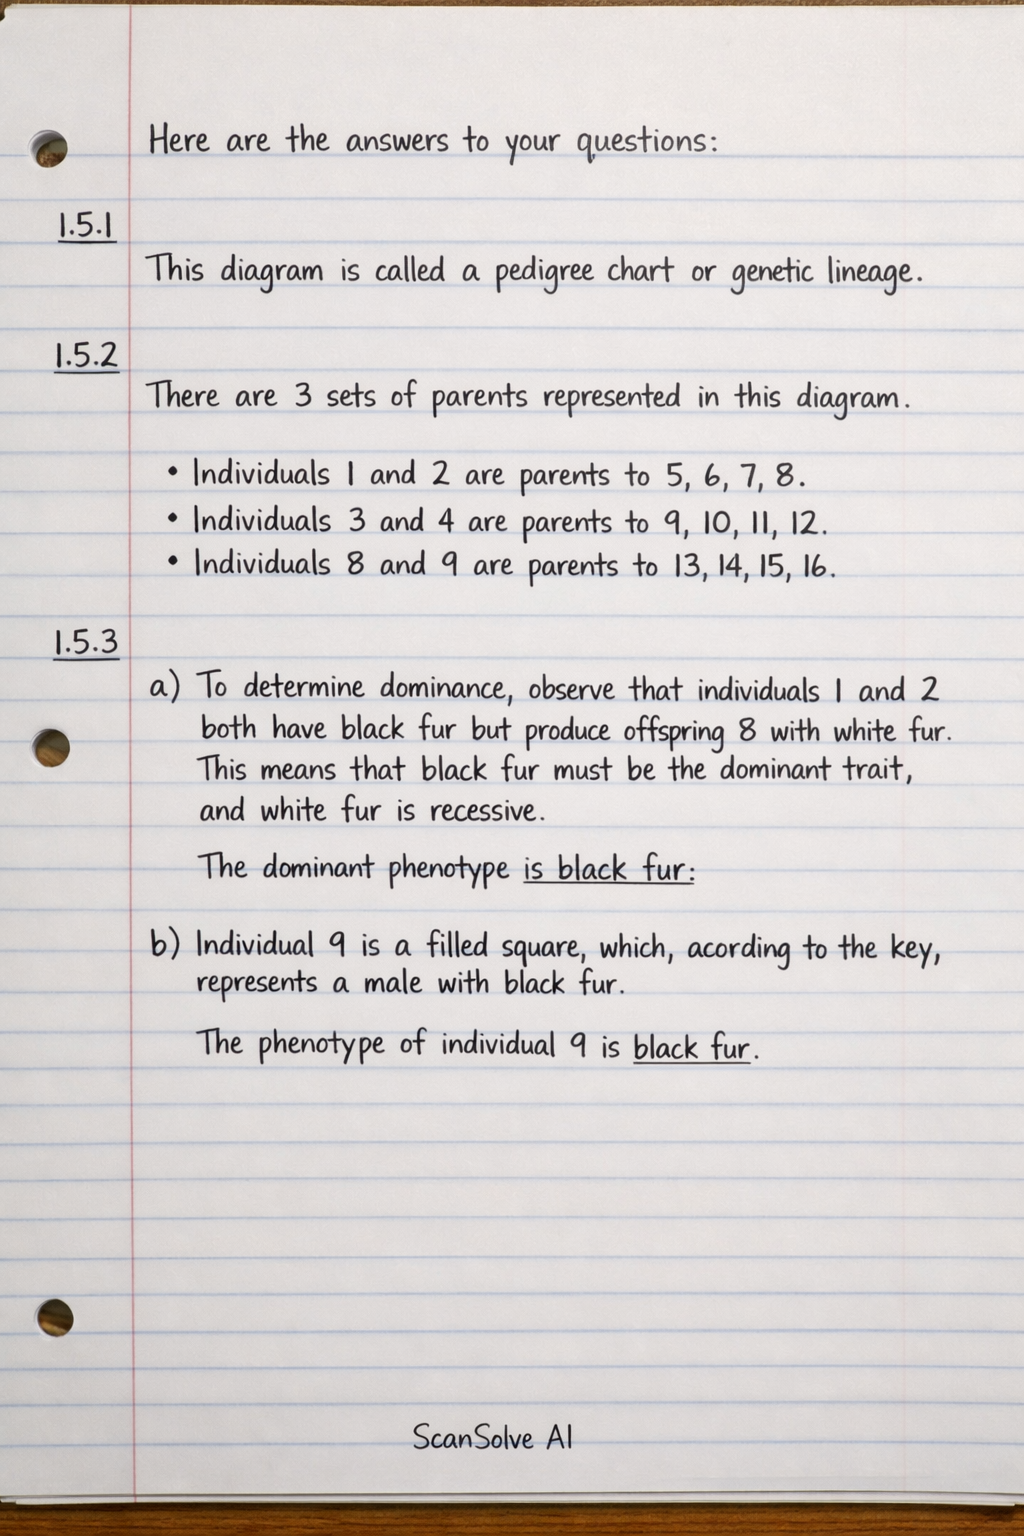 Here are the answers to your questions:
1.5.1
This diagram is called a pedigree chart or genetic lineage.
1.5.2
There are 3 sets of parents represented in this diagram.
• Individuals 1 and 2 are parents to 5, 6, 7, 8.
• Individuals 3 and 4 are parents to 9, 10, 11, 12.
• Individuals 8 and 9 are parents to 13, 14, 15, 16.
1.5.3
a) To determine dominance, observe that individuals 1 and 2
both have black fur but produce offspring 8 with white fur.
This means that black fur must be the dominant trait,
and white fur is recessive.
The dominant phenotype is black fur:
b) Individual 9 is a filled square, which, acording to the key,
represents a male with black fur.
The phenotype of individual 9 is black fur.
ScanSolve AI